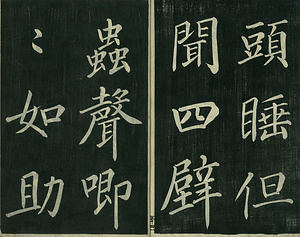 頭睡但
聞四壁
蟲聲唧
〻如助